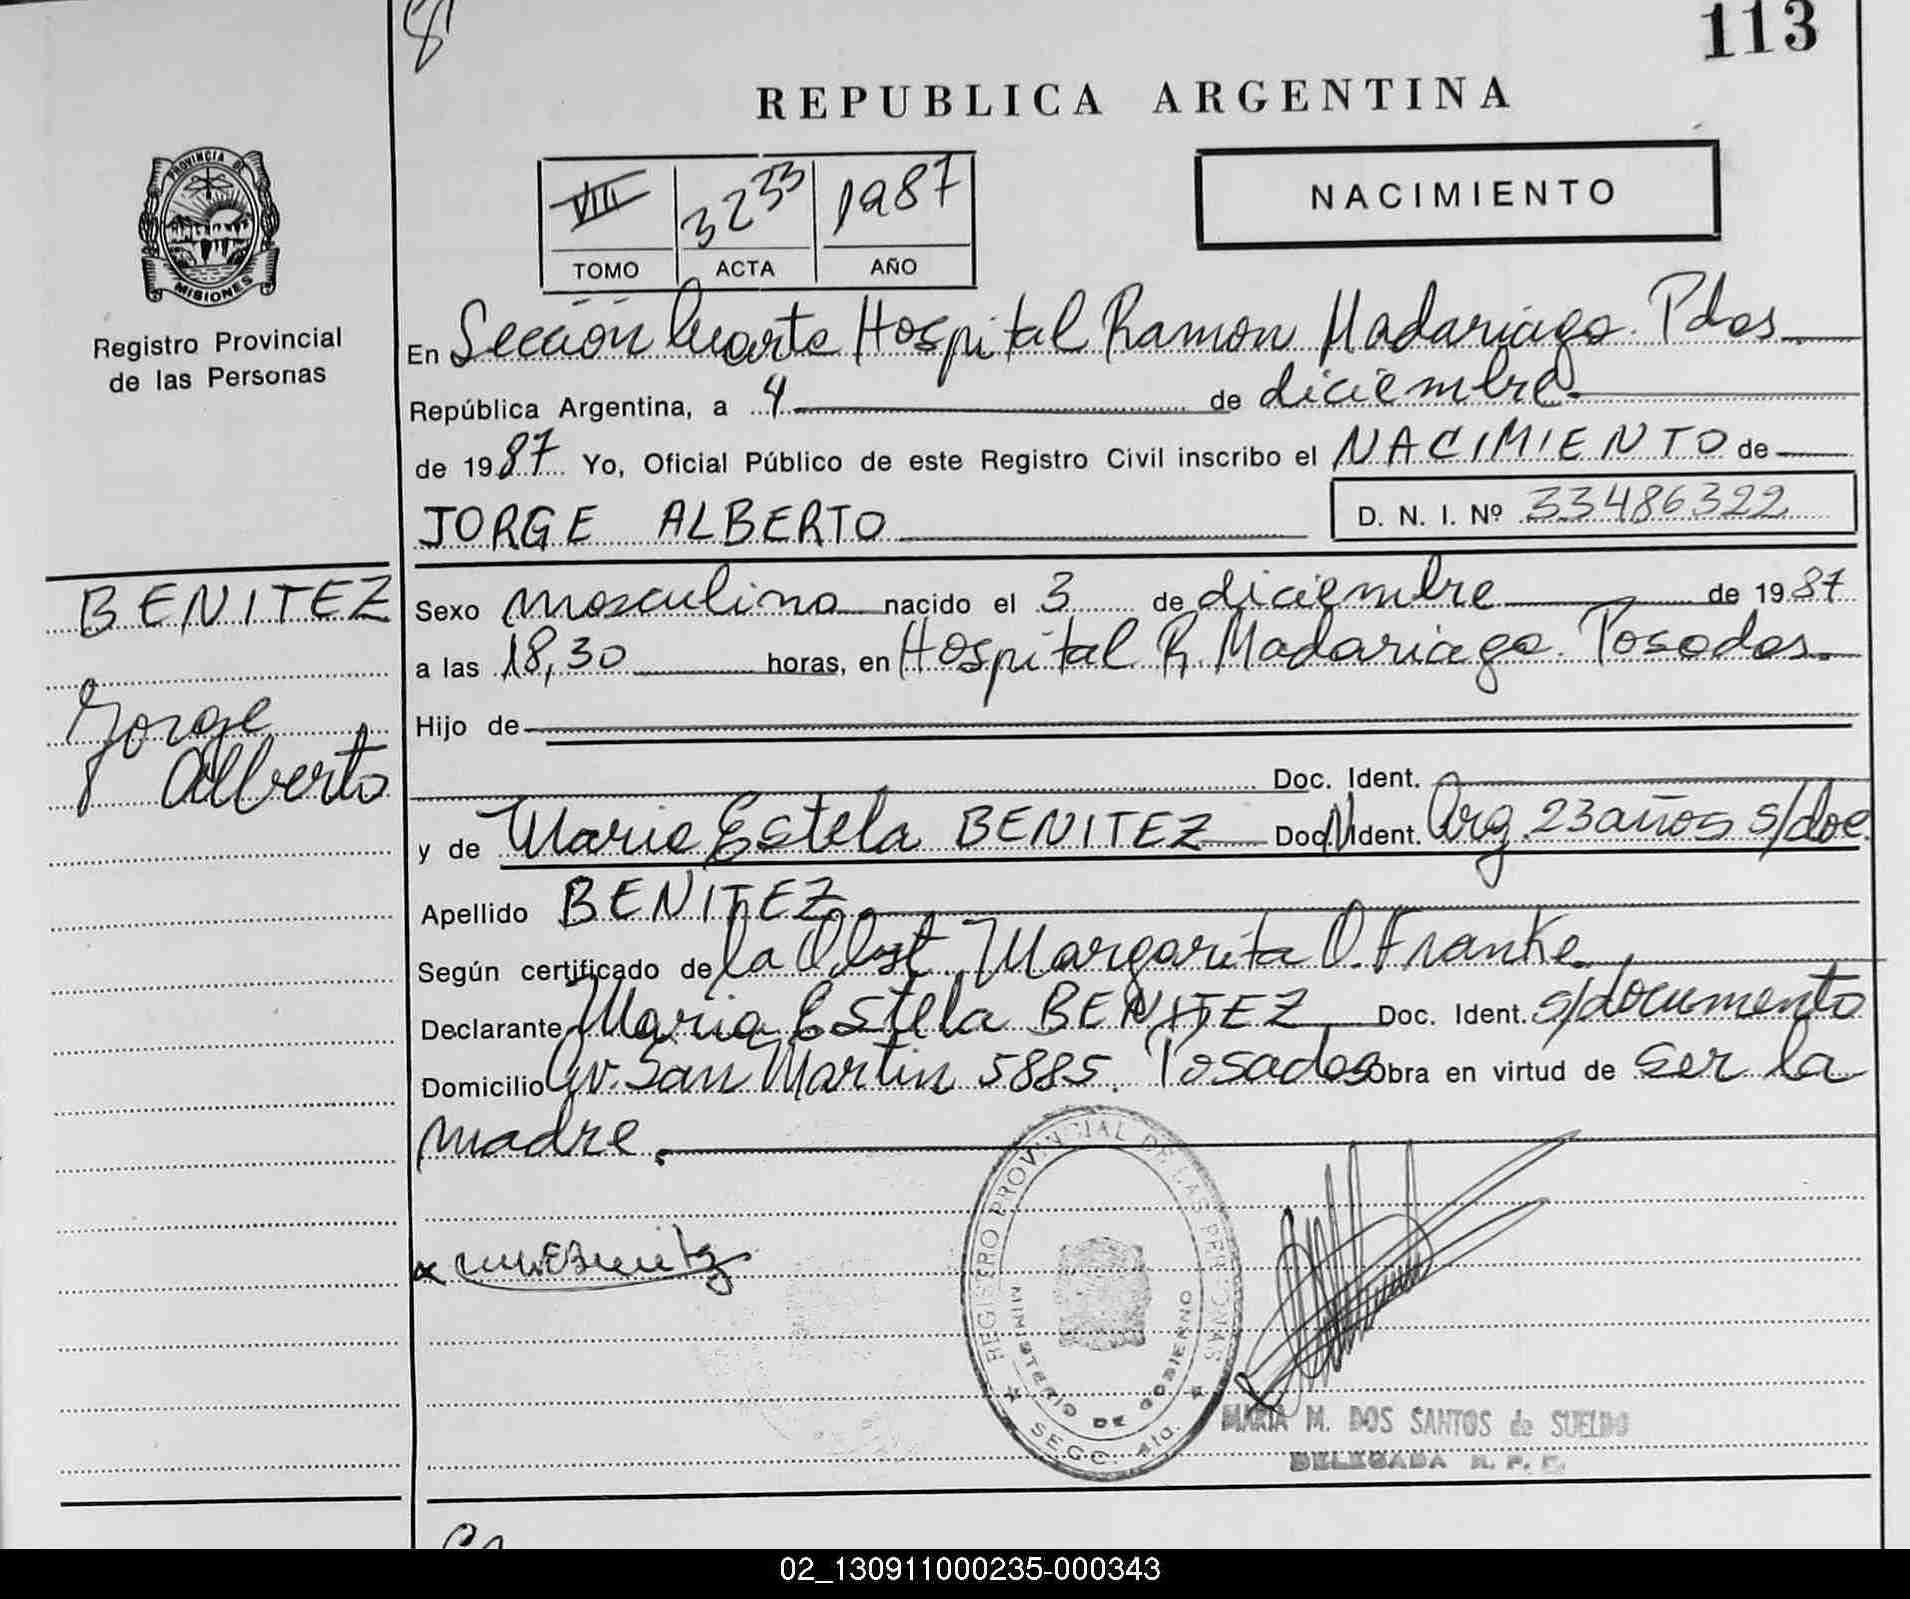 113
REPUBLICA ARGENTINA
PROVINCIA DE
MISIONES
Registro Provincial
de las Personas
VIII 3233 1987
TOMO ACTA AÑO
NACIMIENTO
En Sección Cuarta Hospital Ramon Madariaga. Pdas
República Argentina, a 4 de diciembre
de 1987 Yo, Oficial Público de este Registro Civil inscribo el NACIMIENTO de
JORGE ALBERTO
D. N. I. Nº 33486322
BENITEZ
Jorge
Alberto
Sexo masculino nacido el 3 de diciembre de 1987
a las 18,30 horas, en Hospital R. Madariaga. Posadas.
Hijo de
Doc. Ident.
y de Maria Estela BENITEZ Doc. Ident. Arg. 23 años s/doc.
Apellido BENITEZ
Según certificado de la Obst. Margarita O. Franke
Declarante Maria Estela BENITEZ Doc. Ident. s/documento
Domicilio Av. San Martin 5885. Posadas Obra en virtud de ser la
madre.
REGISTRO PROVINCIAL DE LAS PERSONAS
MINISTERIO DE GOBIERNO
SECC. 4ta.
MARIA M. DOS SANTOS de SUELDO
DELEGADA R. P. P.
02_130911000235-000343